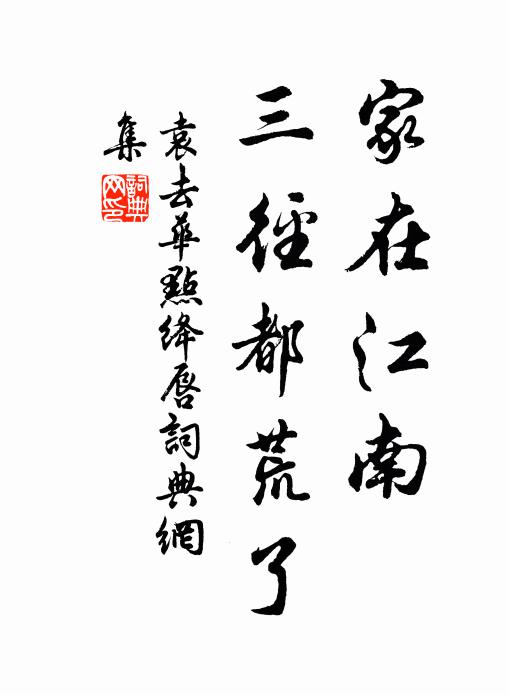 家在江南
三徑都荒了
袁去華點絳唇詞典網
集
詞典網印